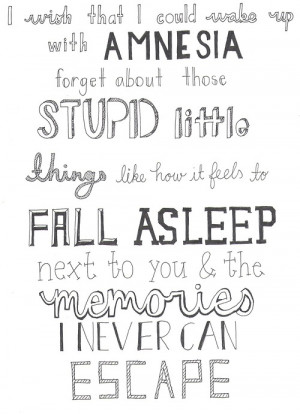 I wish that I could wake up
with AMNESIA
forget about those
STUPID little
things like how it feels to
FALL ASLEEP
next to you & the
memories
I NEVER CAN
ESCAPE